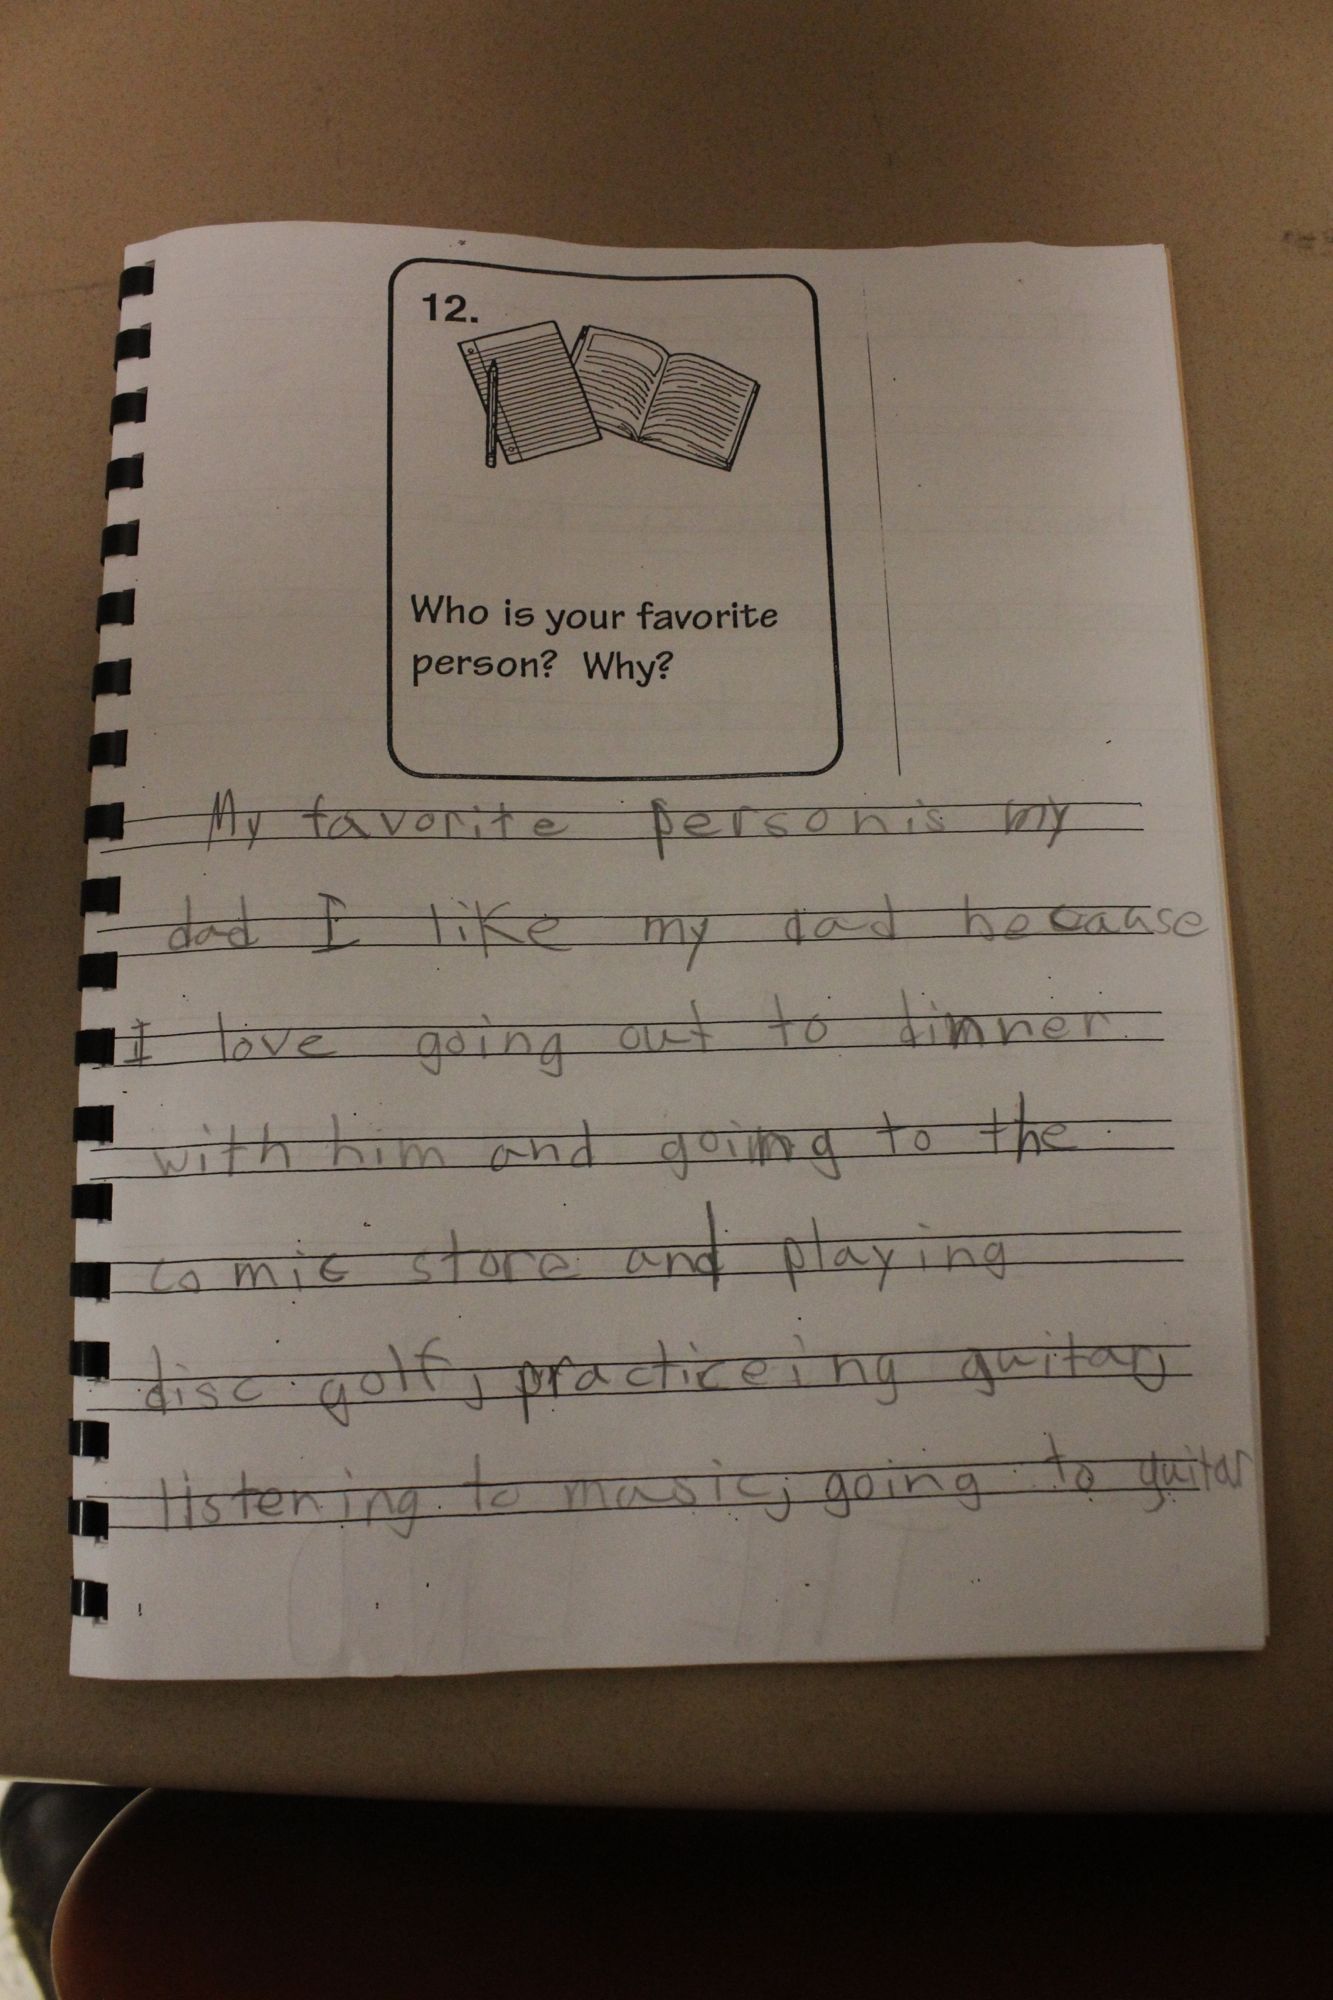 12.
Who is your favorite
person? Why?
My favorite person is my
dad I like my dad because
I love going out to dinner
with him and going to the
comic store and playing
disc golf, practiceing guitar,
listening to music, going to guitar